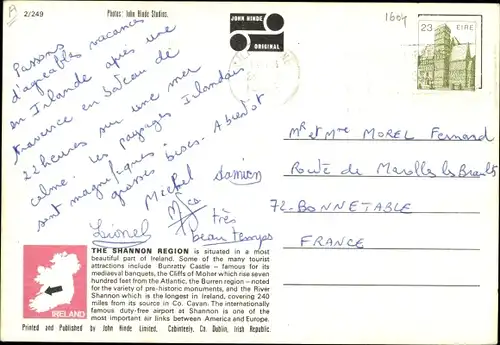 2/249
Photos: John Hinde Studios.
JOHN HINDE
ORIGINAL
1604
23 EIRE
Passons
d'agréables vacances
en Irlande après une
traversée en bateau de
22 heures sur une mer
calme. Les paysages Irlandais
sont magnifiques.
grosses bises. A bientôt
Michel Damien
Lionel
très
beau temps
Mr et Mme MOREL Fernand
Route de Marolles les Braults
72-BONNETABLE
FRANCE
THE SHANNON REGION is situated in a most
beautiful part of Ireland. Some of the many tourist
attractions include Bunratty Castle – famous for its
mediaeval banquets, the Cliffs of Moher which rise seven
hundred feet from the Atlantic, the Burren region – noted
for the variety of pre-historic monuments, and the River
Shannon which is the longest in Ireland, covering 240
miles from its source in Co. Cavan. The internationally
famous duty-free airport at Shannon is one of the
most important air links between America and Europe.
IRELAND
Printed and Published by John Hinde Limited. Cabinteely, Co. Dublin, Irish Republic.